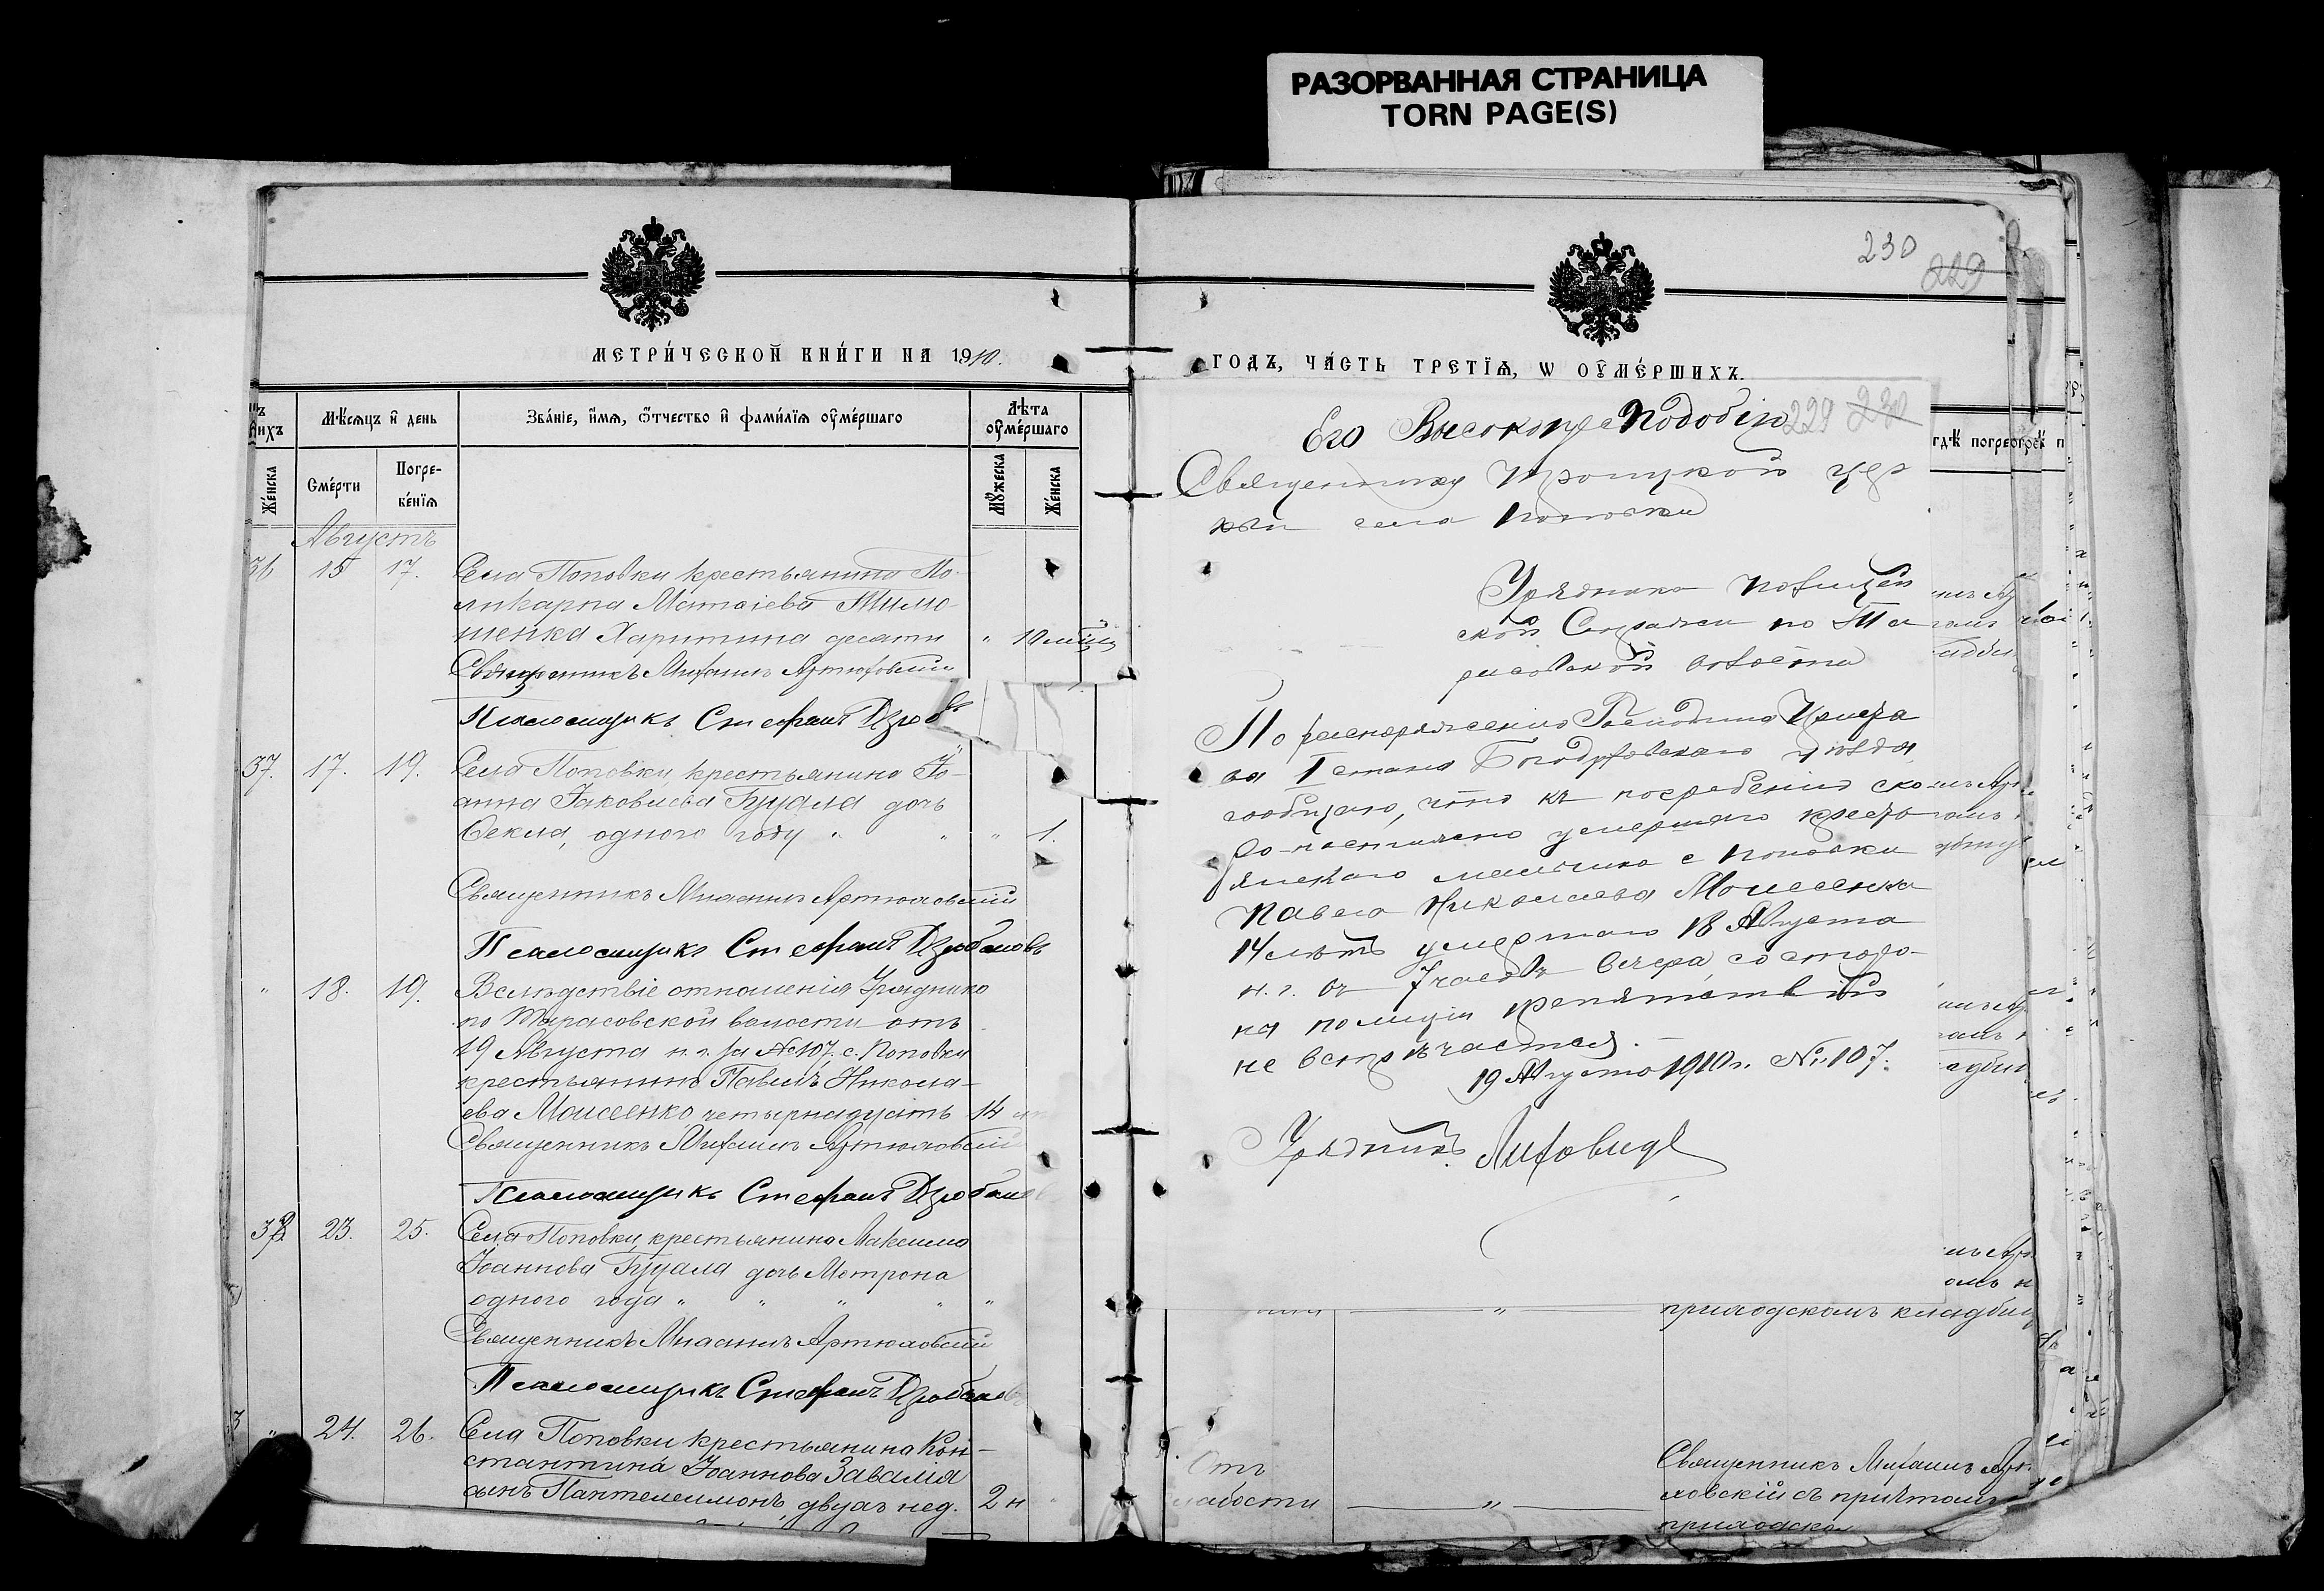 РАЗОРВАННАЯ СТРАНИЦА
TORN PAGE(S)
МЕТРИ́ЧЕСКОЙ КНИ́ГИ НА 1910.
Мѣсяцъ и҆ день
Зва́нїе, и҆́мѧ, ѻ҆́тчество и҆ фами́лїѧ оу҆ме́ршаго
Лѣта оу҆ме́ршаго
Же́нска
Сме́рти
Погре-
бе́нїѧ
Мꙋ́жеска
Же́нска
Августъ
36 15 17. Села Поповки крестьянина По-
ликарпа Матѳіева Тимо-
шенка Харитина десяти " 10 мѣся
Священникъ Михаилъ Артюховскій
Псаломщикъ Стефанъ Дзюб
37. 17. 19. Села Поповки, крестьянина Іо-
анна Іаковлева Буцала дочь
Ѳекла, одного году " " " 1.
Священникъ Михаилъ Артюховскій
Псаломщикъ Стефанъ Дзюбановъ
" 18. 19. Вслѣдствіе отношенія Урядника
по Тарасовской волости отъ
19 Августа н. г. за № 107, с. Поповки
крестьянинъ Павелъ Никола-
евъ Моисеенко, четырнадцать 14
Священникъ Михаилъ Артюховскій
Псаломщикъ Стефанъ Дзюбано
38 23. 25. Села Поповки, крестьянина Максима
Іоаннова Буцала дочь Матрона
одного года " " " " "
Священникъ Михаилъ Артюховскій
Псаломщикъ Стефанъ Дзюбанов
" 24. 26. Села Поповки крестьянина Кон-
стантина Іоаннова Завалія
сынъ Пантелеимонъ, двухъ нед. 2 н
230
229
ГОДЪ, ЧА́СТЬ ТРЕТЇѦ, Ѡ ОУ҆МЕ́РШИХЪ.
229 230
Его Высокопреподобію
Священнику Троицкой цер
кви села Поповки
Урядника Полицей
ской Стражи по Та
расовской волости
По распоряженію Господина Приста
ва I стана Богодуховскаго уѣзда,
сообщаю, что къ погребенію ско
ро-постижно умершаго кресть
янскаго мальчика с Поповки
Павла Николаева Моисеенка
14 лѣтъ умершаго 18 Августа
н. г. въ 7 часовъ вечера, со сторо-
ны полиціи препятствій
не встрѣчается. —
19 Августа 1910 г. № 107.
Урядникъ Лиховидъ
гдѣ погре
приходскомъ кладбищ
Отъ
слабости " Священникъ Михаилъ Артю
ховскій съ причтомъ
приходско